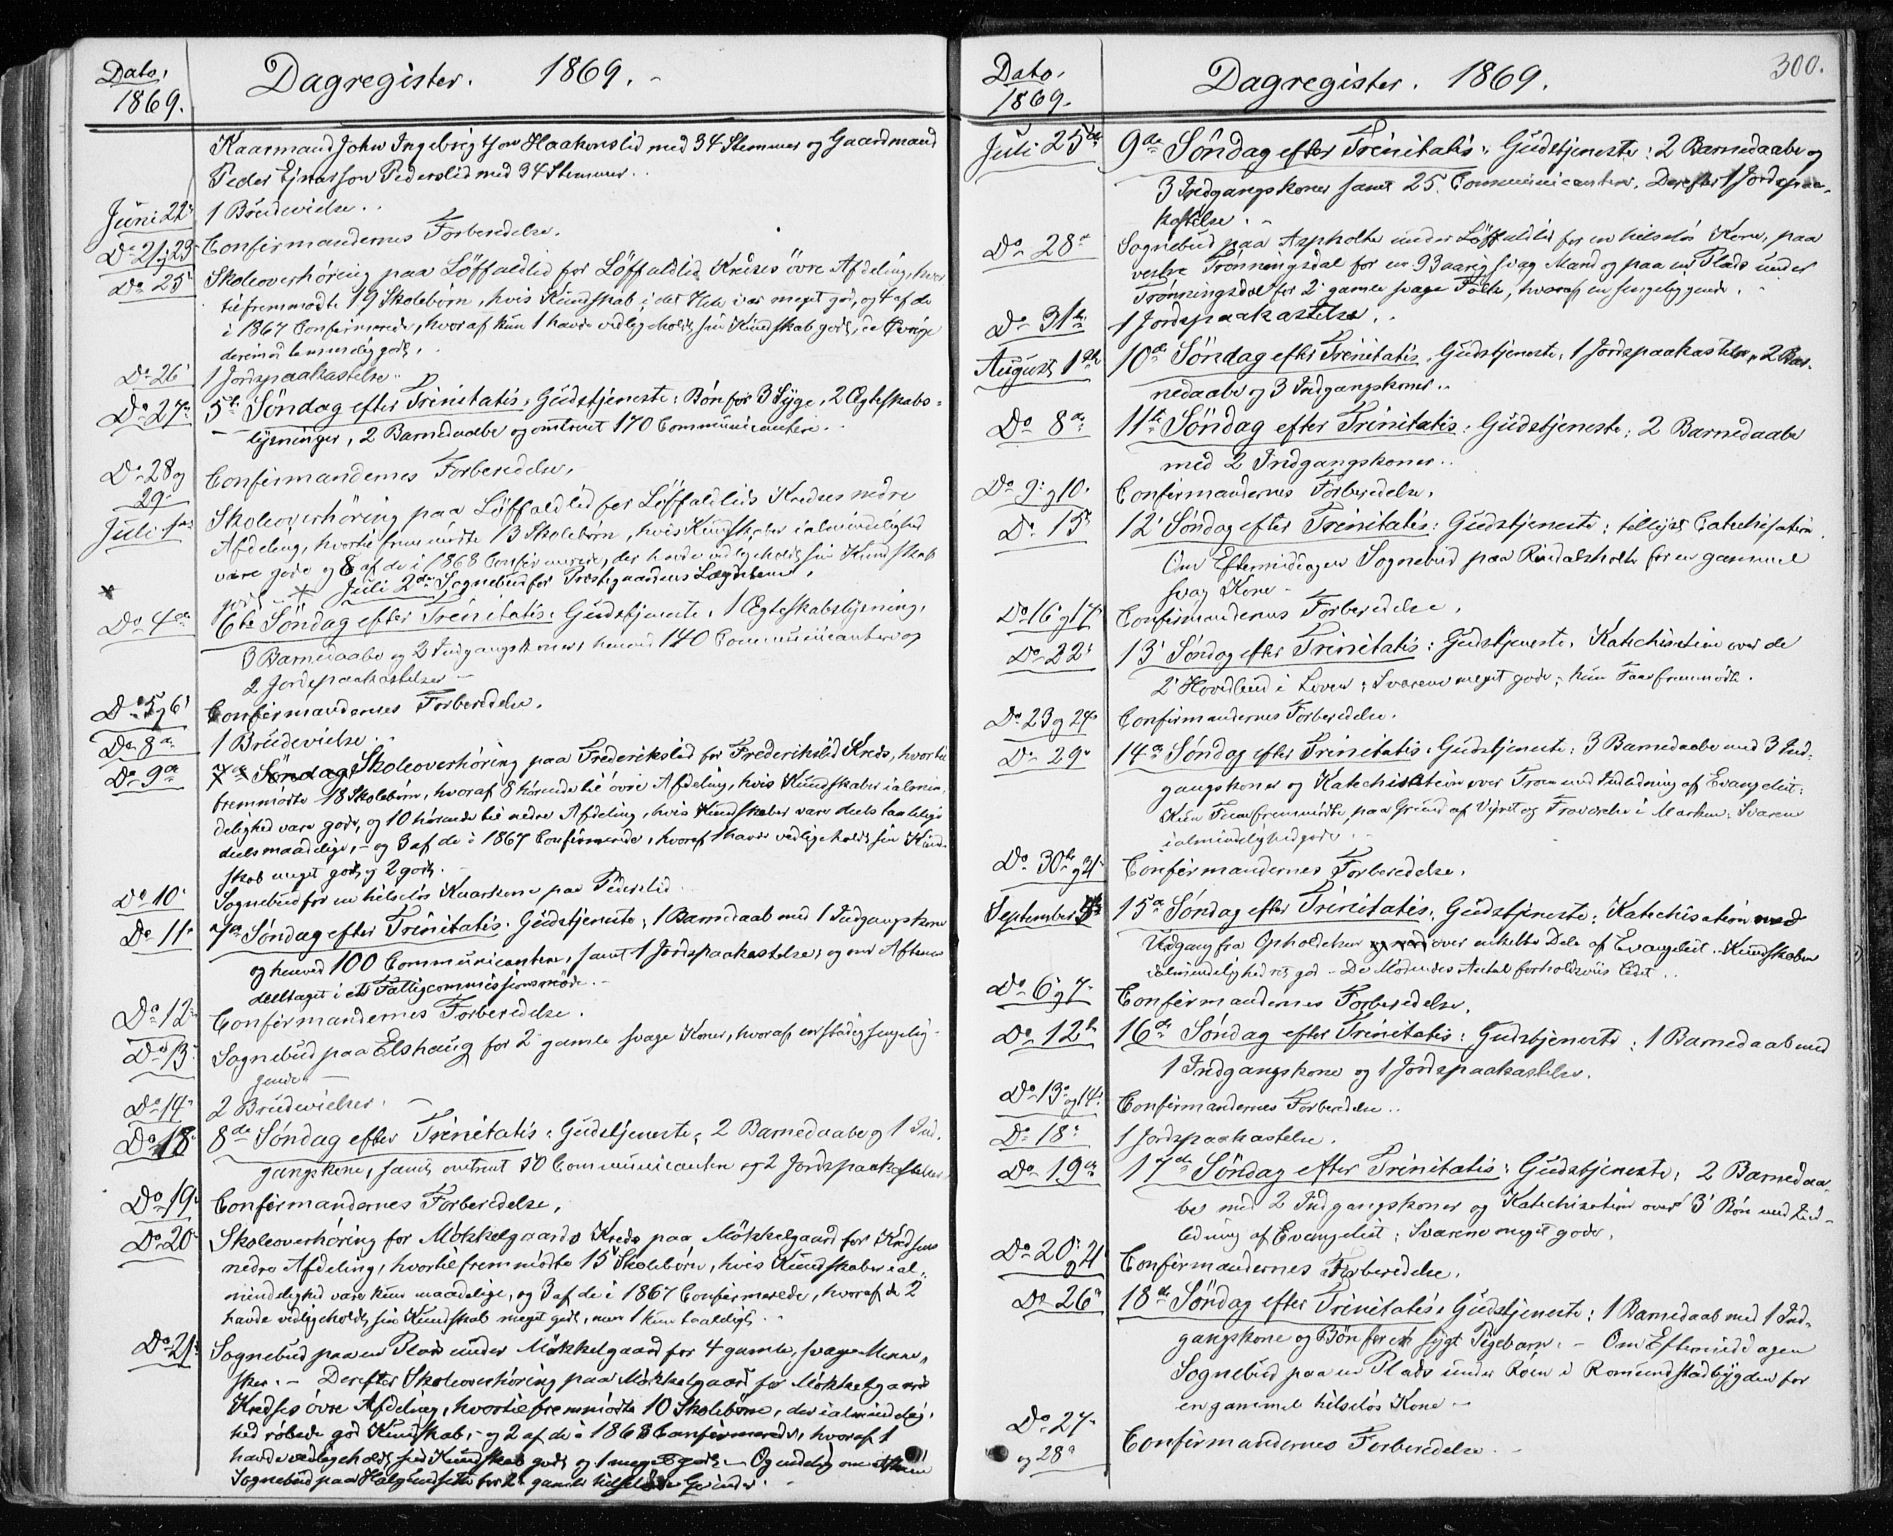 Dato,
1869.
Dagregister. 1869.
Kaarmand John Ingebrigtson Haakenslid med 34 Stemmer og Gaardmand
Peder Pederslid med 34 Stemmer.
Juni 22 1 Brudevielse.
Do 21 og 23 Confirmandernes Forberedelse.
Do 25 Skoleoverhøring paa Løffaldlid for Løffaldlid Kredses övre Afdeling, hvor
til fremmødte 19 Skolebørn, hvis Kundskab i det Hele var meget god, og 4 af de
i 1867 Confirmerede, hvoraf kun 1 havde vedligeholdt sin Kundskab godt, de Øvrige
derimod temmelig godt.
Do 26 1 Jordspaakastelse.
Do 27 5te Søndag efter Trinitatis. Gudstjeneste: Bøn for 3 Syge, 2 Ægteskabs-
lysninger, 2 Barnedaabe og omtrent 170 Communicantere.
Do 28 og
29 Confirmandernes Forberedelse.
Juli 1 Skoleoverhøring paa Løffaldlid for Løffaldlids Kredses nedre
Afdeling, hvortil fremmødte 13 Skolebørn, hvis Kundskaber i almindelighed
vare gode og 8 af de i 1868 Confirmerede, der havde vedligeholdt sin Kundskab
Juli 2den Sognebud for Præstgaardens
Do 4de 6te Søndag efter Trinitatis: Gudstjeneste, 1 Ægteskabslysning,
3 Barnedaabe og 2 Indgangskoner, henved 140 Communicantere og
2 Jordspaakastelser
Do 5 og 6 Confirmandernes Forberedelse.
Do 8de 1 Brudevielse.
Do 9de Skoleoverhøring paa Frederikslid for Frederikslid Kreds, hvortil
fremmødte 18 Skolebørn, hvoraf 8 hørende til övre Afdeling, hvis Kundskaber i almin-
delighed vare gode, og 10 hørende til nedre Afdeling, hvis Kundskaber vare deels taalelige
deels maadelige, - og 3 af de i 1867 Confirmerede, hvoraf 1 havde vedligeholdt sin Kund-
skab meget godt og 2 godt.
Do 10 Sognebud for en helseløs Kaarkone paa
Do 11 7de Søndag efter Trinitatis. Gudstjeneste, 1 Barnedaab med 1 Indgangskone
og henved 100 Communicantere, samt 1 Jordspaakastelse, og om Aftenen
deeltaget i et Fattigcommissionsmøde.
Do 12 Confirmandernes Forberedelse.
Do 13 Sognebud paa Elshaug for 2 gamle svage Koner, hvoraf en stadig sengelig-
gende
Do 14 2 Brudevielser.
Do 18 8de Søndag efter Trinitatis. Gudstjeneste, 2 Barnedaabe og 1 Ind-
gangskone, samt omtrent 50 Communicantere og 2 Jordspaakastelser
Do 19 Confirmandernes Forberedelse.
Do 20 Skoleoverhøring for Møkkelgaards Kreds paa Møkkelgaard for Kredsens
nedre Afdeling, hvortil fremmødte 15 Skolebørn, hvis Kundskaber i al-
mindelighed vare kun maadelige, og 3 af de i 1867 Confirmerede, hvoraf de 2
havde vedligeholdt sin Kundskab meget godt, men 1 kun taaleligt.
Do 21 Sognebud paa en Plads under Møkkelgaard for 4 gamle, svage Menne-
sker. - Derefter Skoleoverhøring paa Møkkelgaard for Møkkelgaard
Kredses övre Afdeling, hvortil fremmødte 10 Skolebørn, der i almindelig-
hed røbede god Kundskab, og 2 af de i 1868 Confirmerede, hvoraf 1
havde vedligeholdt sin Kundskab godt og 1 meget godt. - Og endelig om Aftenen
Sognebud paa for 2 gamle helseløse Qvinder.
300.
Dato.
1869.
Dagregister. 1869.
Juli 25de 9de Søndag efter Trinitatis. Gudstjeneste: 2 Barnedaabe og
3 Indgangskoner samt 25 Communicantere. Derefter 1 Jordspaa-
kastelse.
Do 28 Sognebud paa Aspholte under Løffaldlid for en helseløs Kone, paa
vestre Trønningsdal for en 93aarig svag Mand og paa en Plads under
Trønningsdal for 2 gamle svage Folk, hvoraf en sengeliggende.
Do 31te 1 Jordspaakastelse.
August 1ste 10de Søndag efter Trinitatis. Gudstjeneste, 1 Jordspaakastelse, 2 Bar-
nedaabe og 3 Indgangskoner.
Do 8de 11te Søndag efter Trinitatis: Gudstjeneste: 2 Barnedaabe
med 2 Indgangskoner.
Do 9 og 10 Confirmandernes Forberedelse.
Do 15 12 Søndag efter Trinitatis: Gudstjeneste: tillyst Catechisation.
Om Eftermiddagen Sognebud paa Rindalsholte for en gammel
svag Kone -
Do 16 og 17 Confirmandernes Forberedelse.
Do 22 13 Søndag efter Trinitatis: Gudstjeneste. Katechisation over de
2 Hovedbud i Loven; Svarene meget gode; kun Faae fremmødte.
Do 23 og 24 Confirmandernes Forberedelse.
Do 29 14de Søndag efter Trinitatis: Gudstjeneste: 3 Barnedaabe med 3 Ind-
gangskoner og Katechisation over Troen med Indledning af Evangeliet;
Kun Faae fremmødte paa Grund af Veiret og Fraværelse i Marken; Svarene
i almindelighed gode.
Do 30te og 31 Confirmandernes Forberedelse.
September 5te 15de Søndag efter Trinitatis. Gudstjeneste: Katechisation med
Udgang fra Opholdelsen over enkelte Dele af Evangeliet. Kundskaben
i almindelighed ret god - De Mødendes Antal forholdsviis lidet.
Do 6 og 7 Confirmandernes Forberedelse.
Do 12te 16de Søndag efter Trinitatis: Gudstjeneste: 1 Barnedaab med
1 Indgangskone og 1 Jordspaakastelse.
Do 13 og 14 Confirmandernes Forberedelse.
Do 18 1 Jordspaakastelse.
Do 19de 17de Søndag efter Trinitatis: Gudstjeneste: 2 Barnedaa-
be med 2 Indgangskoner og Katechisation over 3 Bøn med Ind-
ledning af Evangeliet; Svarene meget gode.
Do 20 og 21 Confirmandernes Forberedelse.
Do 26 18de Søndag efter Trinitatis: Gudstjeneste: 1 Barnedaab med 1 Ind-
gangskone og Bøn for et sygt Pigebarn. - Om Eftermiddagen
Sognebud paa en Plads under Roen i Romundstadbygden for
en gammel helseløs Kone -
Do 27
og 28 Confirmandernes Forberedelse.